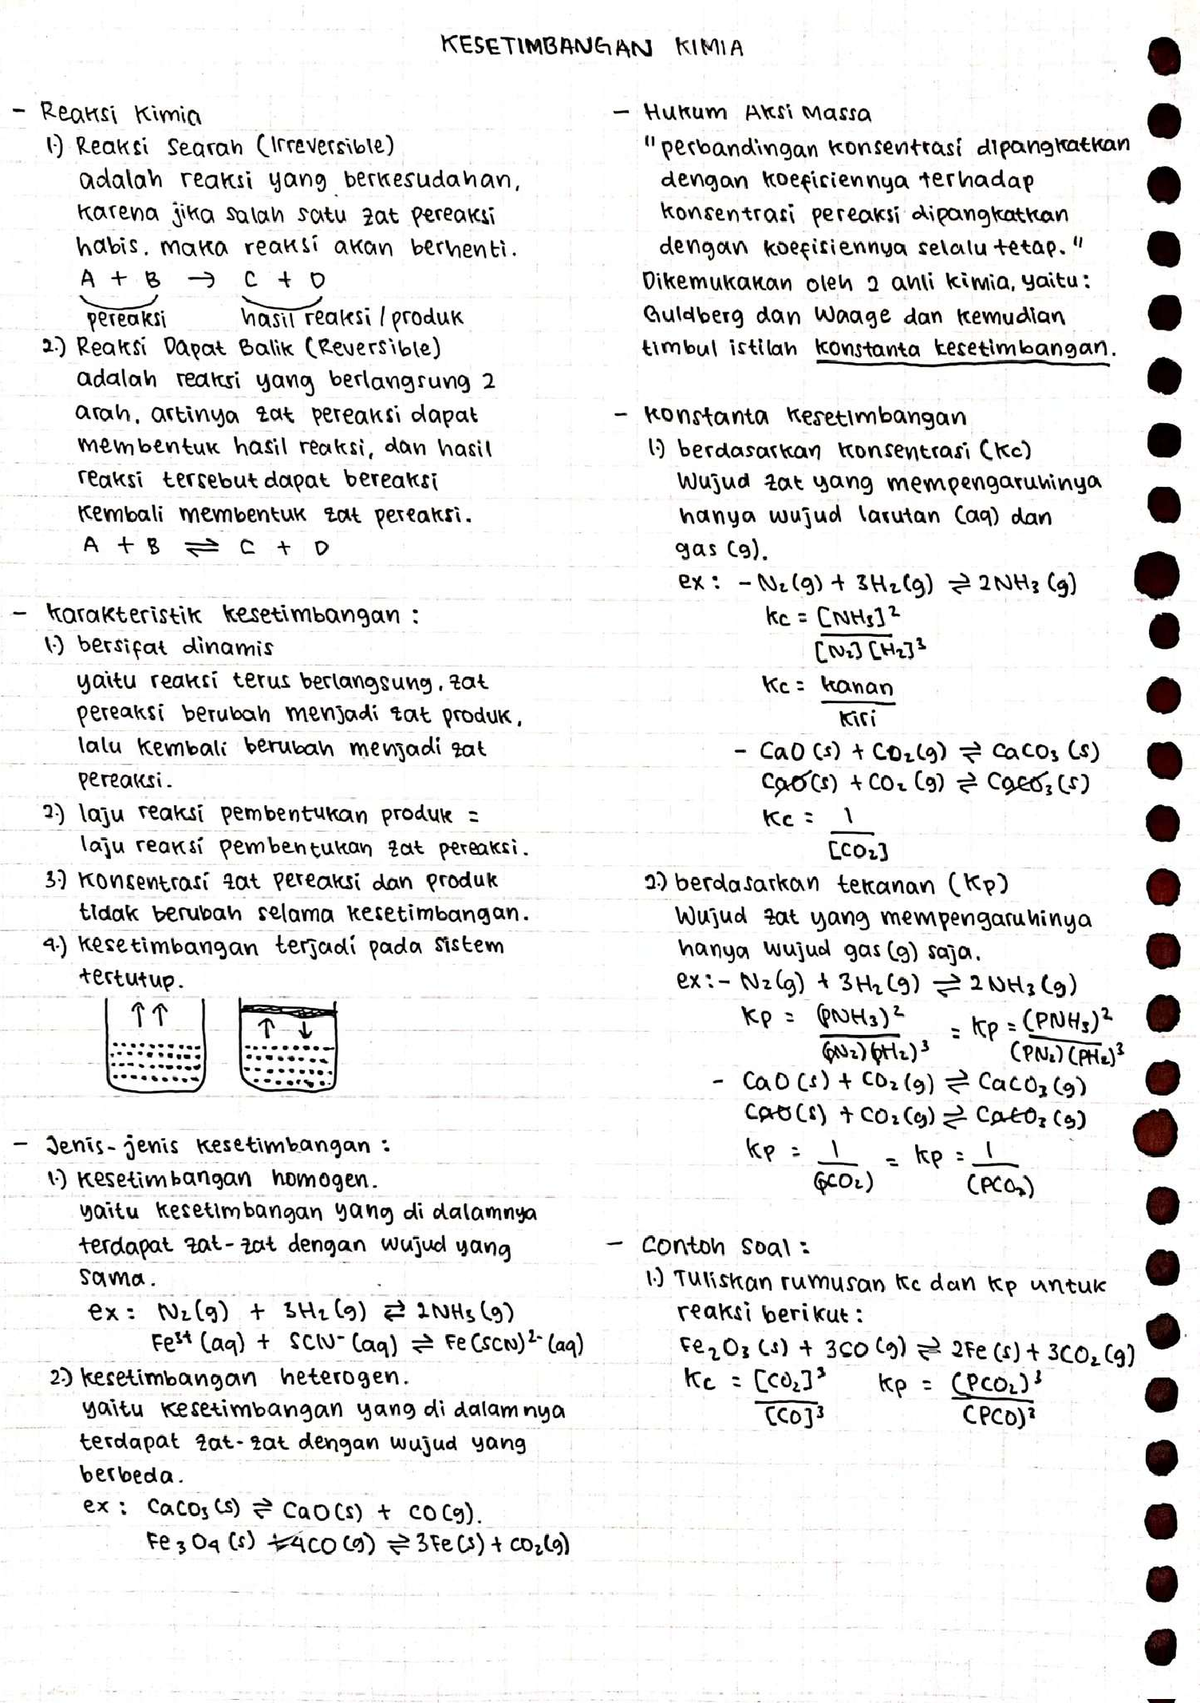 KESETIMBANGAN KIMIA
- Reaksi Kimia
1.) Reaksi Searah (Irreversible)
adalah reaksi yang berkesudahan,
karena jika salah satu zat pereaksi
habis, maka reaksi akan berhenti.
A + B → C + D
pereaksi hasil reaksi / produk
2.) Reaksi Dapat Balik (Reversible)
adalah reaksi yang berlangsung 2
arah, artinya zat pereaksi dapat
membentuk hasil reaksi, dan hasil
reaksi tersebut dapat bereaksi
kembali membentuk zat pereaksi.
A + B ⇌ C + D
- Karakteristik kesetimbangan :
1.) bersifat dinamis
yaitu reaksi terus berlangsung, zat
pereaksi berubah menjadi zat produk,
lalu kembali berubah menjadi zat
pereaksi.
2.) laju reaksi pembentukan produk =
laju reaksi pembentukan zat pereaksi.
3.) Konsentrasi zat pereaksi dan produk
tidak berubah selama kesetimbangan.
4.) kesetimbangan terjadi pada sistem
tertutup.
↑↑ ↑ ↓
- Jenis-jenis kesetimbangan :
1.) kesetimbangan homogen.
yaitu kesetimbangan yang di dalamnya
terdapat zat-zat dengan wujud yang
sama.
ex : N₂(g) + 3H₂(g) ⇌ 2NH₃(g)
Fe³⁺(aq) + SCN⁻(aq) ⇌ Fe(SCN)²⁻(aq)
2.) kesetimbangan heterogen.
yaitu kesetimbangan yang di dalamnya
terdapat zat-zat dengan wujud yang
berbeda.
ex : CaCO₃(s) ⇌ CaO(s) + CO(g).
Fe₃O₄(s) + 4CO(g) ⇌ 3Fe(s) + CO₂(g)
- Hukum Aksi Massa
"perbandingan konsentrasi dipangkatkan
dengan koefisiennya terhadap
konsentrasi pereaksi dipangkatkan
dengan koefisiennya selalu tetap."
Dikemukakan oleh 2 ahli kimia, yaitu :
Guldberg dan Waage dan kemudian
timbul istilah konstanta kesetimbangan.
- Konstanta Kesetimbangan
1.) berdasarkan konsentrasi (Kc)
Wujud zat yang mempengaruhinya
hanya wujud larutan (aq) dan
gas (g).
ex : - N₂(g) + 3H₂(g) ⇌ 2NH₃(g)
Kc = [NH₃]²
[N₂] [H₂]³
Kc = kanan
kiri
- CaO(s) + CO₂(g) ⇌ CaCO₃(s)
CaO(s) + CO₂(g) ⇌ CaCO₃(s)
Kc = 1
[CO₂]
2.) berdasarkan tekanan (Kp)
Wujud zat yang mempengaruhinya
hanya wujud gas (g) saja.
ex : - N₂(g) + 3H₂(g) ⇌ 2NH₃(g)
Kp = (pNH₃)² = Kp = (PNH₃)²
(pN₂)(pH₂)³ (PN₂)(PH₂)³
- CaO(s) + CO₂(g) ⇌ CaCO₃(g)
CaO(s) + CO₂(g) ⇌ CaCO₃(g)
Kp = 1 = Kp = 1
(pCO₂) (PCO₂)
- Contoh Soal :
1.) Tuliskan rumusan Kc dan Kp untuk
reaksi berikut :
Fe₂O₃(s) + 3CO(g) ⇌ 2Fe(s) + 3CO₂(g)
Kc = [CO₂]³ Kp = (PCO₂)³
[CO]³ (PCO)³